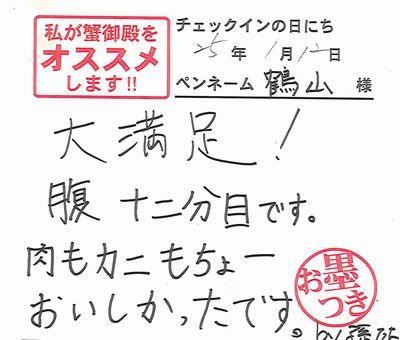 私が蟹御殿を
オススメ
します!!
チェックインの日にち
25年 1月12日
ペンネーム 鶴山 様
大満足!
腹十二分目です。
肉もカニもちょー
おいしかったです。
お墨つき
by孫たち